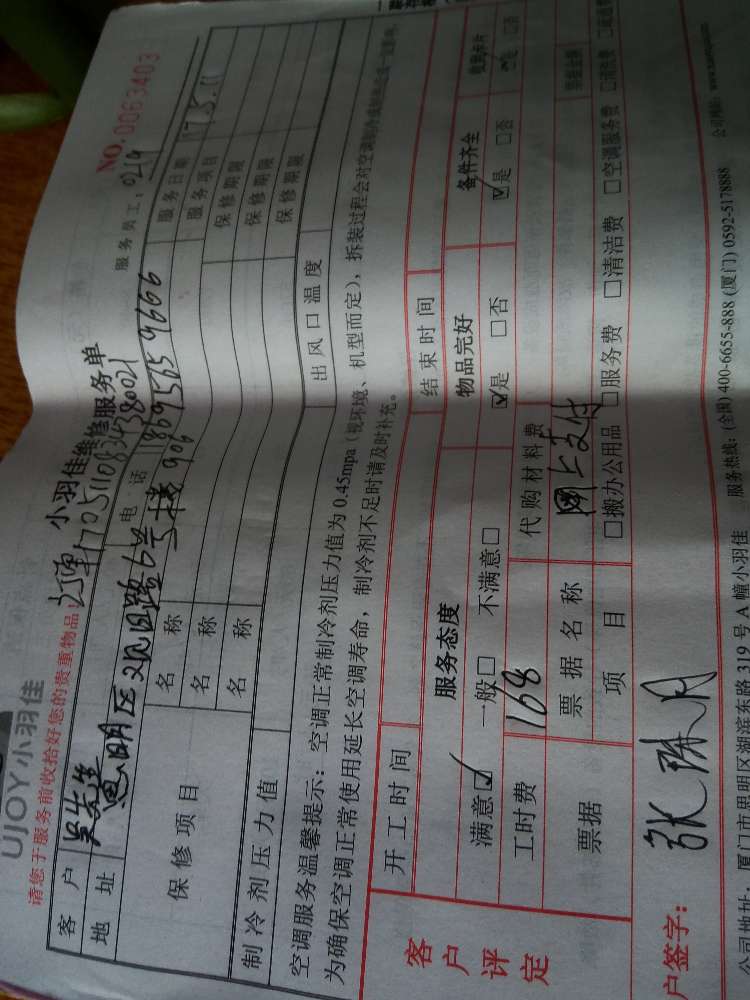 UJOY小羽佳
小羽佳维修服务单
NO.0063403
请您于服务前收拾好您的贵重物品
服务员工：0219
客户 吴先生 电话 18695659606 服务日期 17.5.11
地址 思明区 路6号楼906 服务项目
保修项目 名称 保修期限
名称 保修期限
名称 保修期限
制冷剂压力值 出风口温度
空调服务温馨提示：空调正常制冷剂压力值为0.45mpa（视环境、机型而定），拆装过程会对空调制冷
为确保空调正常使用延长空调寿命，制冷剂不足时请及时补充。
客户评定
开工时间 结束时间
服务态度 物品完好 备件齐全 收到卡片
满意☑ 一般□ 不满意□ ☑是 □否 ☑是 □否 是 □否
工时费 168 代购材料费
票据 票据名称 网上支付 票据金额
项目 □搬办公用品 □服务费 □清洁费 □空调服务费 □消洗费
户签字：
公司地址：厦门市思明区湖滨东路319号A幢小羽佳 服务热线：(全国) 400-6655-888 (厦门) 0592-5178888 公司网站：